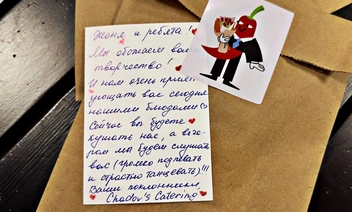 Женя и ребята!
Мы обожаем ваше
творчество!
И нам очень приятно
угощать вас сегодня
нашими блюдами
Сейчас вы будете
кушать нас, а вече-
ром мы будем слушать
вас (громко подпевать
и страстно танцевать)!!!
Ваши поклонники,
Chadov's Catering